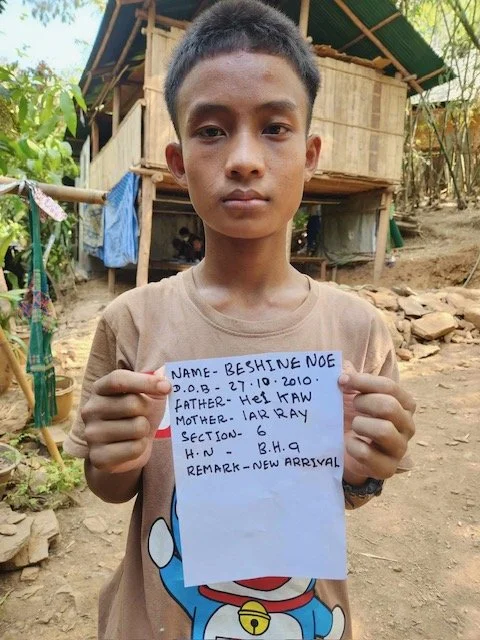 NAME- BESHINE NOE
D.O.B - 27.10.2010.
FATHER- HeI KAW
MOTHER- IAR RAY
SECTION- 6
H.N - B.H.9
REMARK-NEW ARRIVAL